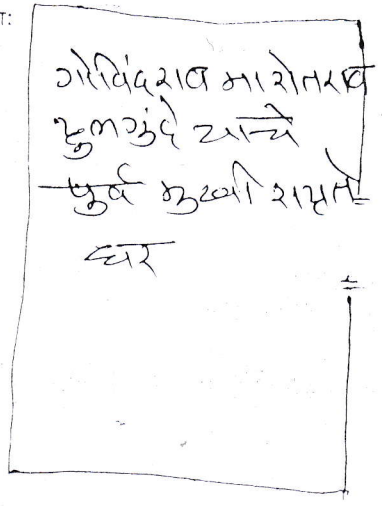 त:
गोविंदराव मारोतराव
फुलगुंदे यान्चे
पुर्व मुखी रहाते
घर